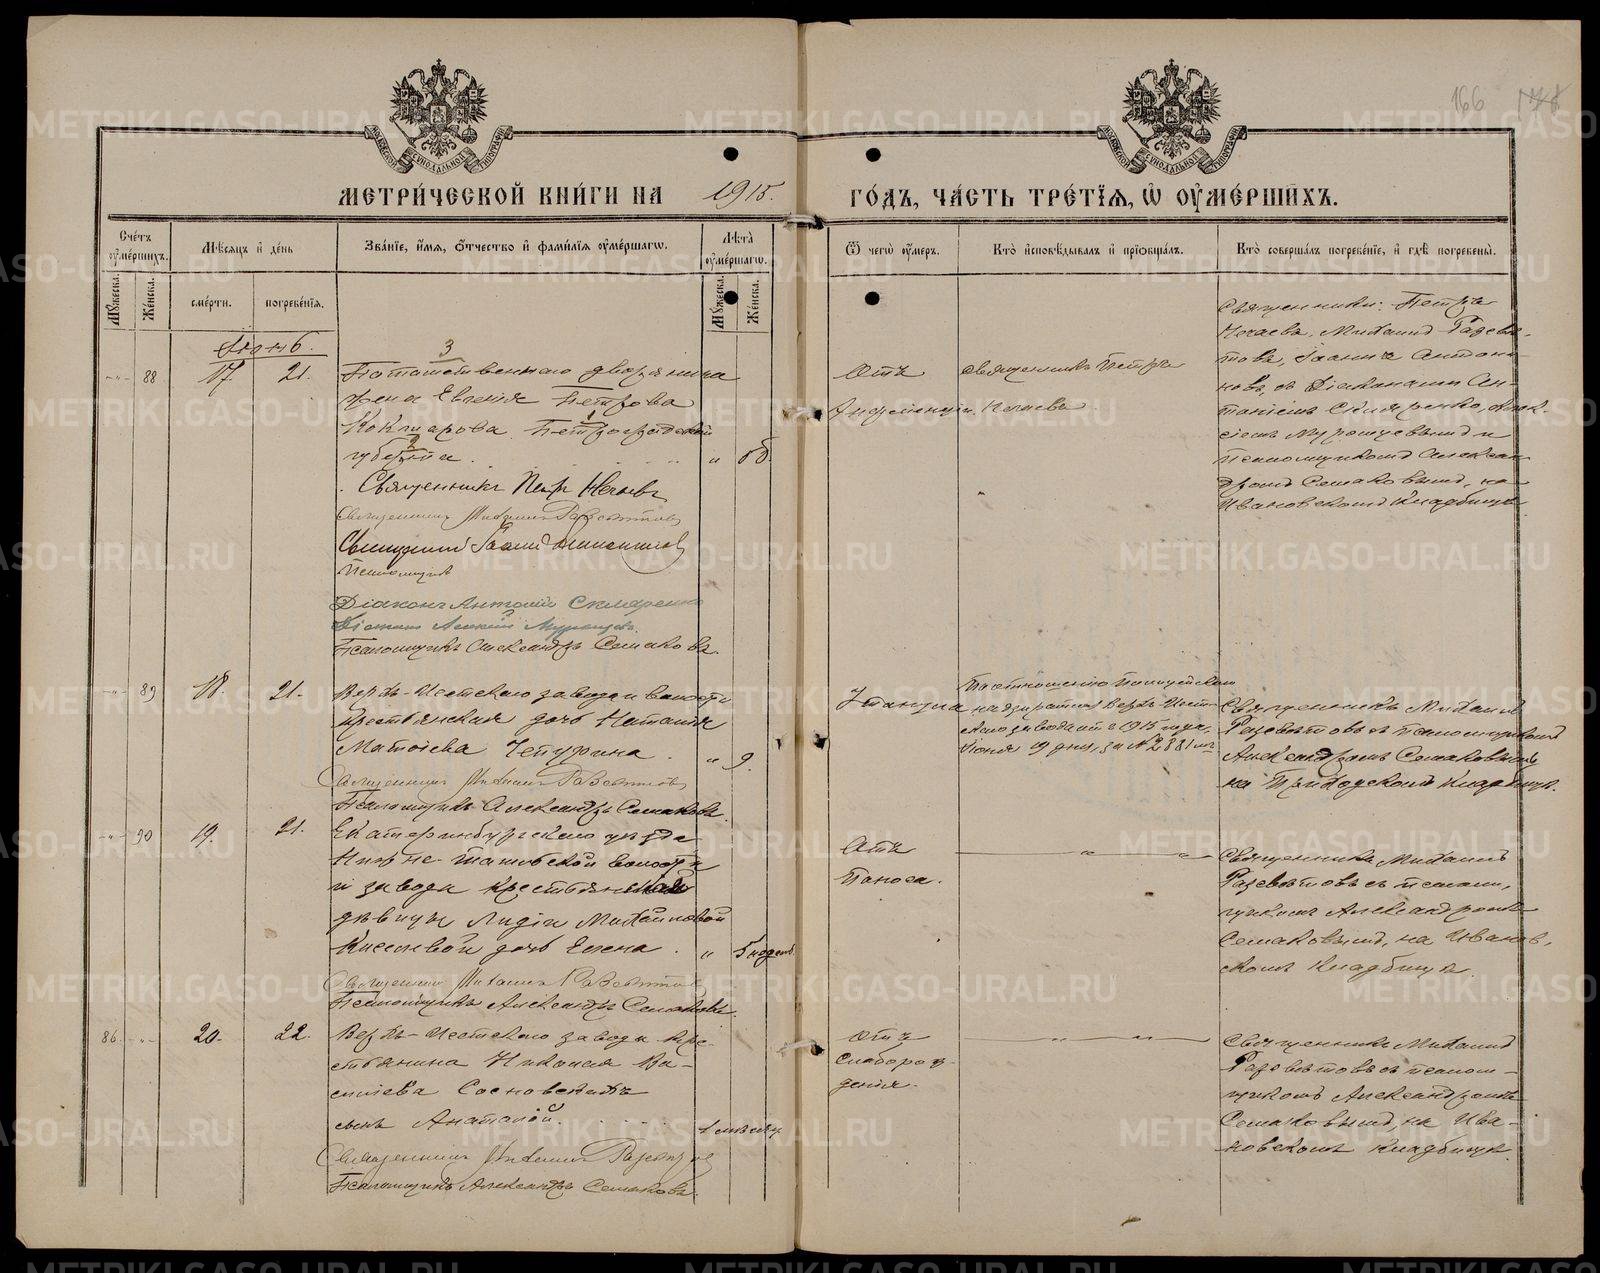 166
МЕТРИ́ЧЕСКОЙ КНИ́ГИ НА 1915. ГО́ДЪ, ЧА́СТЬ ТРЕ́ТІЯ, Ѡ ОУМЕ́РШИХЪ.
Сче́тъ оумéршихъ.
Мꙋ́жеска.
Же́нска.
Мѣ́сяцъ и де́нь
сме́рти.
погребе́нія.
Зва́ніе, и́мя, о́тчество и фами́лія оуме́ршагѡ.
Лѣ́та оуме́ршагѡ.
Мꙋ́жеска.
Же́нска.
Ѿ чегѡ̀ оу́меръ.
Кто̀ исповѣ́дывалъ и пріѡбща́лъ.
Кто̀ соверша́лъ погребе́ніе, и гдѣ̀ погребены̀.
Іюнь.
88
17.
21.
3
Потомственнаго дворянина
жена Евгенія Петрова
Кокшарова Петроградской
губерніи.
Священникъ Петръ Нечаевъ
Священникъ Михаилъ Разсвѣтовъ
Священникъ Іоаннъ
Псаломщикъ
Діаконъ Антоній Скляренко
Псаломщикъ Александръ Сомаковъ.
Отъ
священникъ Петръ
Нечаевъ.
Священники: Петръ
Нечаевъ, Михаилъ Разсвѣ-
товъ, Іоаннъ Антони-
новъ, съ Діаконами Ан-
тоніемъ Скляренко, Алек-
сіемъ и
псаломщикомъ Алексан-
дромъ Сомаковымъ, на
Ивановскомъ Кладбищѣ.
89
18.
21.
Верхъ-Исетскаго завода и волости
крестьянская дочь Наталія
Матвіева Чепурина.
9.
Священникъ Михаилъ Разсвѣтовъ
Псаломщикъ Александръ Сомаковъ.
Утонула
По отношенію Полицейскаго
надзирателя Верхъ-Исет-
скаго завода отъ 1915 года,
Іюня 19 дня, за № 2881
Священникъ Михаилъ
Разсвѣтовъ съ псаломщикомъ
Александромъ Сомаковымъ
на Приходскомъ Кладбищѣ.
90
19.
21.
Екатеринбургскаго уѣзда
волости
и завода крестьянской
дѣвицы Лидіи Михайловой
Киселевой дочь Елена.
5 недель
Священникъ Михаилъ Разсвѣтовъ
Псаломщикъ Александръ Сомаковъ.
Отъ
поноса.
Священникъ Михаилъ
Разсвѣтовъ съ псалом-
щикомъ Александромъ
Сомаковымъ, на Иванов-
скомъ Кладбищѣ.
86
20.
22.
Верхъ-Исетскаго завода кре-
стьянина Николая Ва-
силіева Сосновскихъ
сынъ Анатолій.
1 мѣсяц
Священникъ Михаилъ Разсвѣтовъ
Псаломщикъ Александръ Сомаковъ.
Отъ
слаборож-
денія.
Священникъ Михаилъ
Разсвѣтовъ съ псалом-
щикомъ Александромъ
Сомаковымъ, на Ива-
новскомъ Кладбищѣ.
METRIKI.GASO-URAL.RU